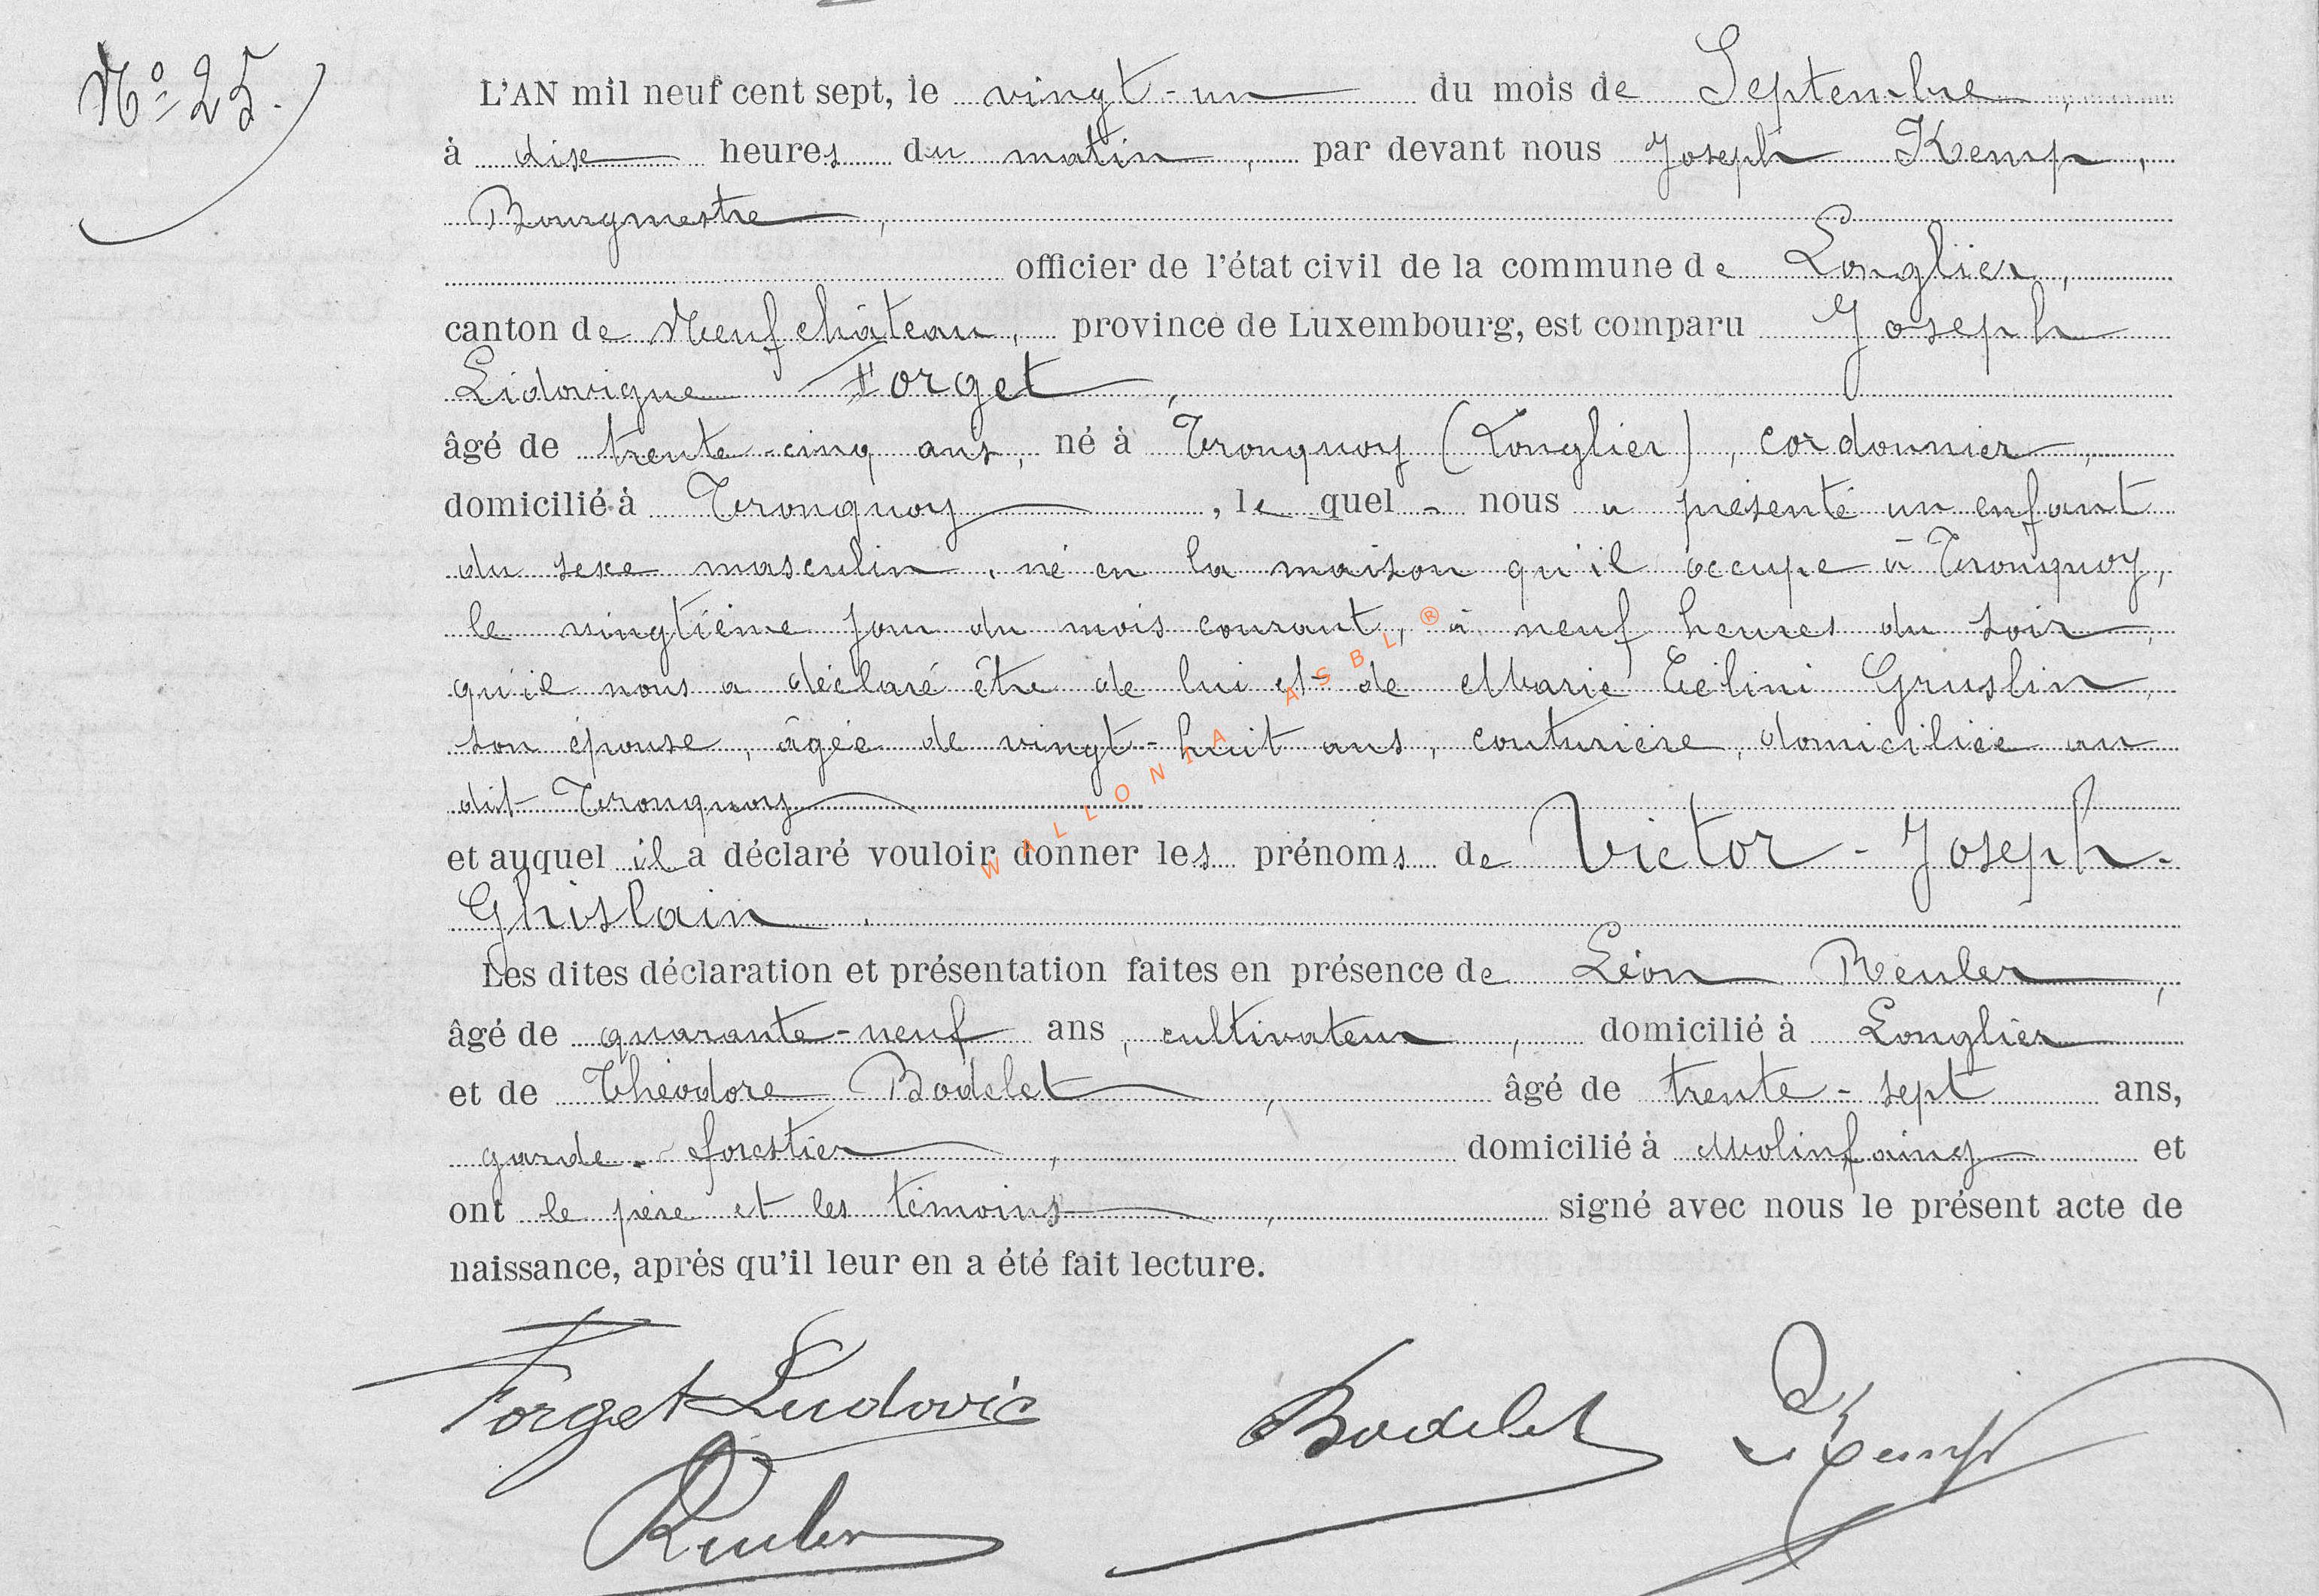 N° 25.
L'AN mil neuf cent sept, le vingt-un du mois de Septembre,
à dix heures du matin, par devant nous Joseph Kemp,
Bourgmestre,
officier de l'état civil de la commune de Longlier,
canton de Neufchâteau, province de Luxembourg, est comparu Joseph
Lidovigue Forget,
âgé de trente-cinq ans, né à Tronquoy (Longlier), cordonnier,
domicilié à Tronquoy, le quel nous a présenté un enfant
du sexe masculin, né en la maison qu'il occupe à Tronquoy,
le vingtième jour du mois courant, à neuf heures du soir,
qu'il nous a déclaré être de lui et de Marie Célini Gruslin,
son épouse, âgée de vingt-huit ans, couturière, domiciliée au
dit Tronquoy
et auquel il a déclaré vouloir donner les prénoms de Victor-Joseph-
Ghislain.
Les dites déclaration et présentation faites en présence de Léon Reuler,
âgé de quarante-neuf ans, cultivateur, domicilié à Longlier
et de Théodore Bodelet, âgé de trente-sept ans,
garde-forestier, domicilié à Molinfaing et
ont le père et les témoins, signé avec nous le présent acte de
naissance, après qu'il leur en a été fait lecture.
Forget Ludovic
Bodelet
J Kemp
Reuler
WALLONIA ASBL ®